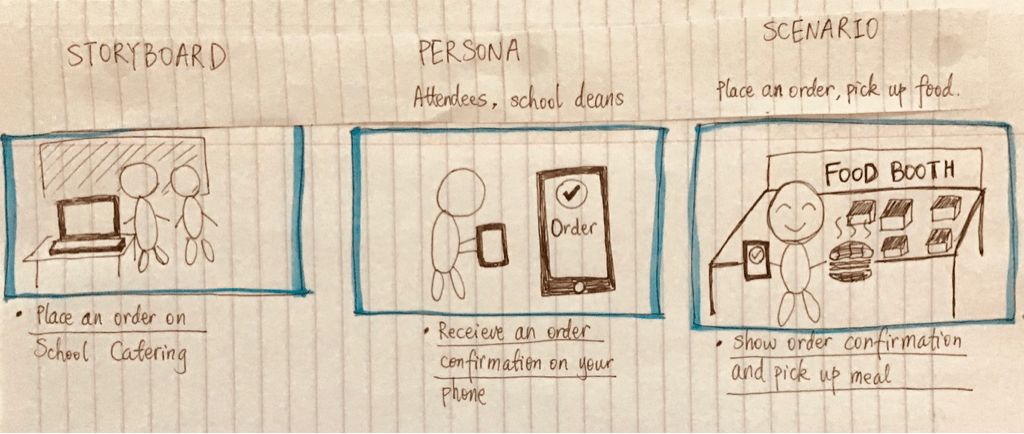 STORYBOARD
PERSONA
Attendees, school deans
SCENARIO
Place an order, pick up food.
• Place an order on
School Catering
Order
• Receieve an order
confirmation on your
phone
FOOD BOOTH
• Show order confirmation
and pick up meal